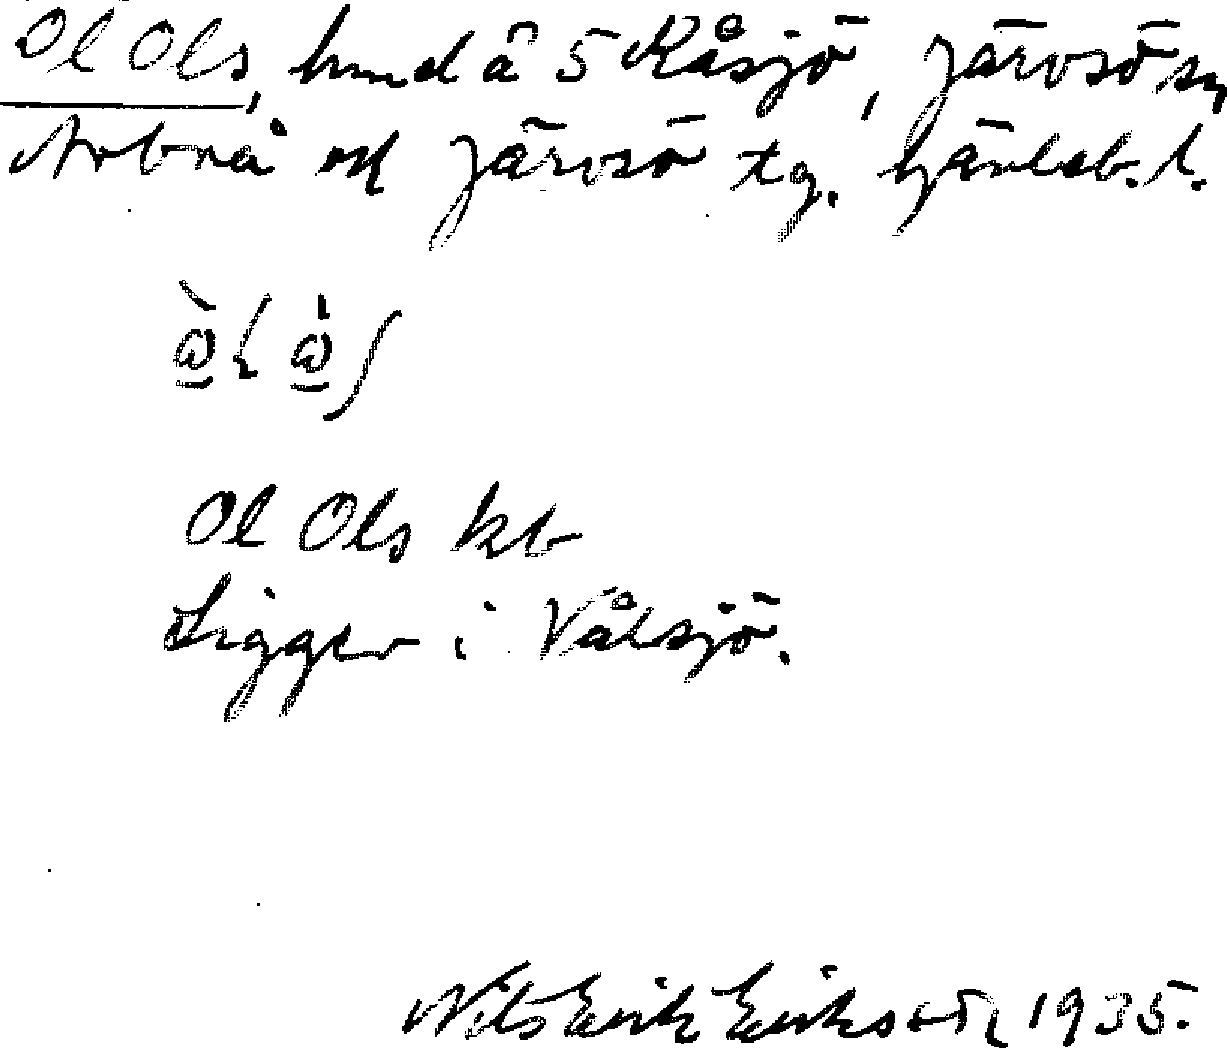 Ol Ols, hmd å 5 Råsjö, Järvsö sn
Arbrå ock Järvsö tg. Gävleb. l.
Ol Ols kb
Ligger i Vålsjö.
Nils Erik Eriksson 1935.